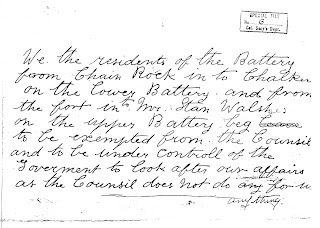 SPECIAL FILE
No. G.
Col. Sec'y's Dept.
We the residents of the Battery
from Chain Rock in to Chalker
on the lower Battery. and from
the fort in to Mr. Stan Walshs
on the upper Battery beg
to be exempted from the Counsil
and to be under controll of the
Goverment to look after our affairs
as the Counsil does not do any for us
any thing.